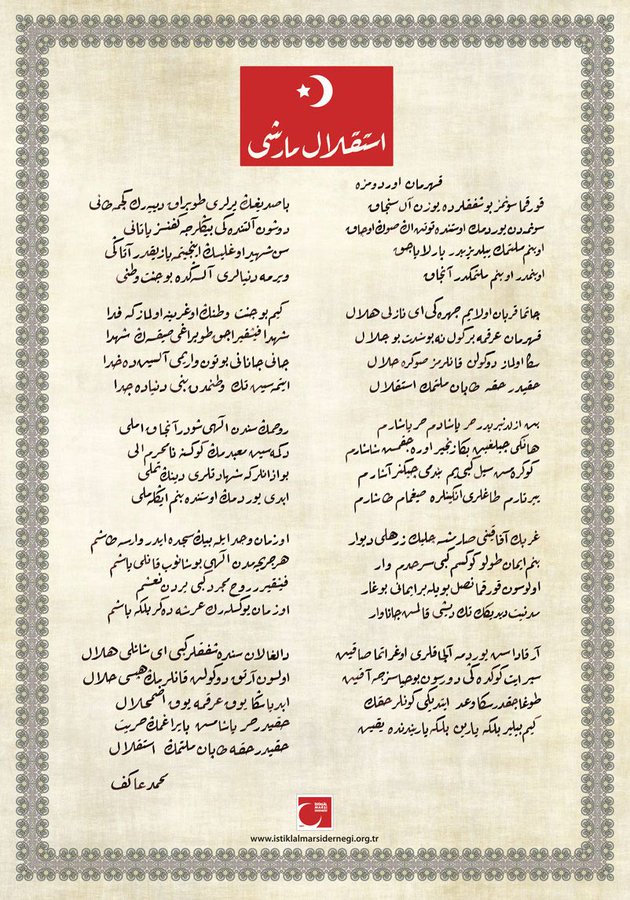 استقلال مارشی
قهرمان اوردومزه
قورقما سونمز بو شفقلرده یوزن آل سنجاق
سونمدن یوردمك اوستنده توتن اڭ صوڭ اوجاق
او بنم ملتمك ییلدیزیدر پارلایاجق
او بنمدر او بنم ملتمكدر آنجاق
چاتما قربان اولایم چهره‌كی ای نازلی هلال
قهرمان عرقمه بر كول نه بو شدت بو جلال
سكا اولماز دوكولن قانلرمز صوكره حلال
حقیدر حقه طاپان ملتمك استقلال
بن ازلدنبریدر حر یاشادم حر یاشارم
هانكی چیلغین بكا زنجیر اوره‌جقمش شاشارم
كوكره‌مش سیل كبی یم بندمی چیكنر آشارم
ییرتارم طاغلری انكینلره صیغمام طاشارم
غربك آفاقنی صارمشسه چلیك زرهلی دیوار
بنم ایمان طولو كوكسم كبی سرحدم وار
اولوسون قورقما نصل بویله بر ایمانی بوغار
مدنیت دیدیكك تك دیشی قالمش جاناوار
آرقاداش یوردمه آلچاقلری اوغراتما صاقین
سپر ایت كوكده‌كی دورسون بو حیاسزجه آقین
طوغاجقدر سكا وعد ایتدیكی كونلر حقك
كیم بیلیر بلكه یارین بلكه یاریندنده یقین
باصدیغك یرلری طوپراق دییه‌رك كچمه طانی
دوشون آلتنده‌كی بیكلرجه كفنسز یاتانی
سن شهید اوغلیسك اینجیتمه یازیقدر آتاكی
ویرمه دنیالری آلسه‌كده بو جنت وطنی
كیم بو جنت وطنك اوغرینه اولماز كه فدا
شهدا فیشقیراجق طوپراغی صیقسه‌ك شهدا
جانی جانانی بوتون واریمی آلسین ده خدا
ایتمه‌سین تك وطنمدن بنی دنیاده جدا
روحمك سندن الهی شودر آنجاق املی
دكمه‌سین معبدمك كوكسنه نامحرم الی
بو اذانلر كه شهادتلری دینك تملی
ابدی یوردمك اوستنده بنم ایكله‌ملی
او زمان وجد ایله بیك سجده ایدر وارسه طاشم
هر جریحه‌مدن الهی بوشانوب قانلی یاشم
فیشقیرر روح مجرد كبی یردن نعشم
او زمان یوكسله‌رك عرشه دكر بلكه باشم
دالغالان سنده شفقلر كبی ای شانلی هلال
اولسون آرتق دوكولن قانلرمك هپسی حلال
ابدیا سكا یوق عرقمه یوق اضمحلال
حقیدر حر یاشامش بایراغمك حریت
حقیدر حقه طاپان ملتمك استقلال
محمد عاكف
www.istiklalmarsidernegi.org.tr